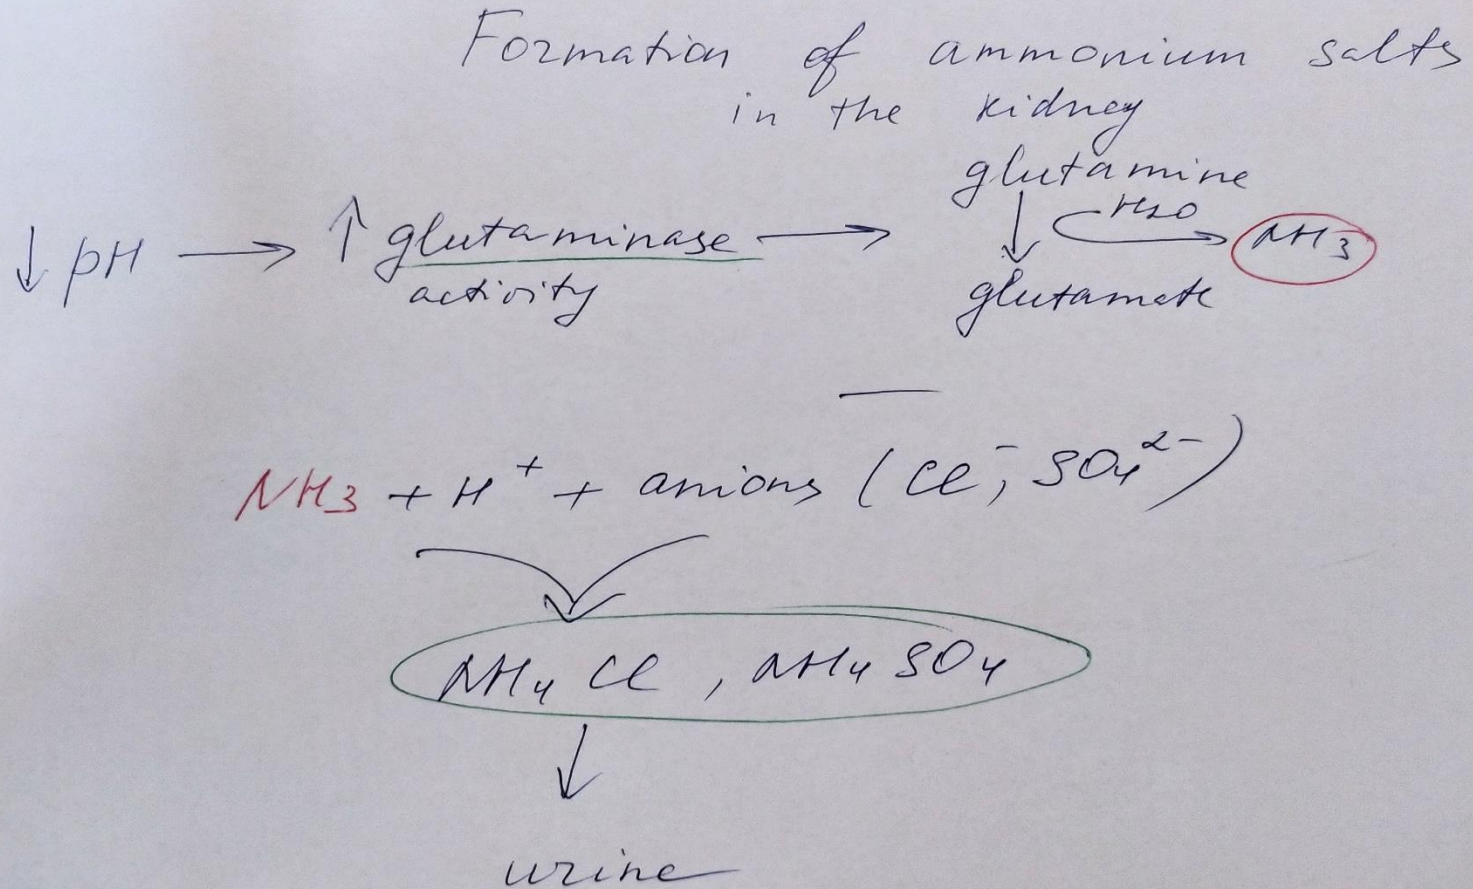 Formation of ammonium salts
in the kidney
glutamine
↓ pH → ↑ glutaminase → ↓ H2O → NH3
activity
glutamate
NH3 + H⁺ + anions (Cl⁻, SO4²⁻)
NH4Cl, NH4SO4
↓
urine